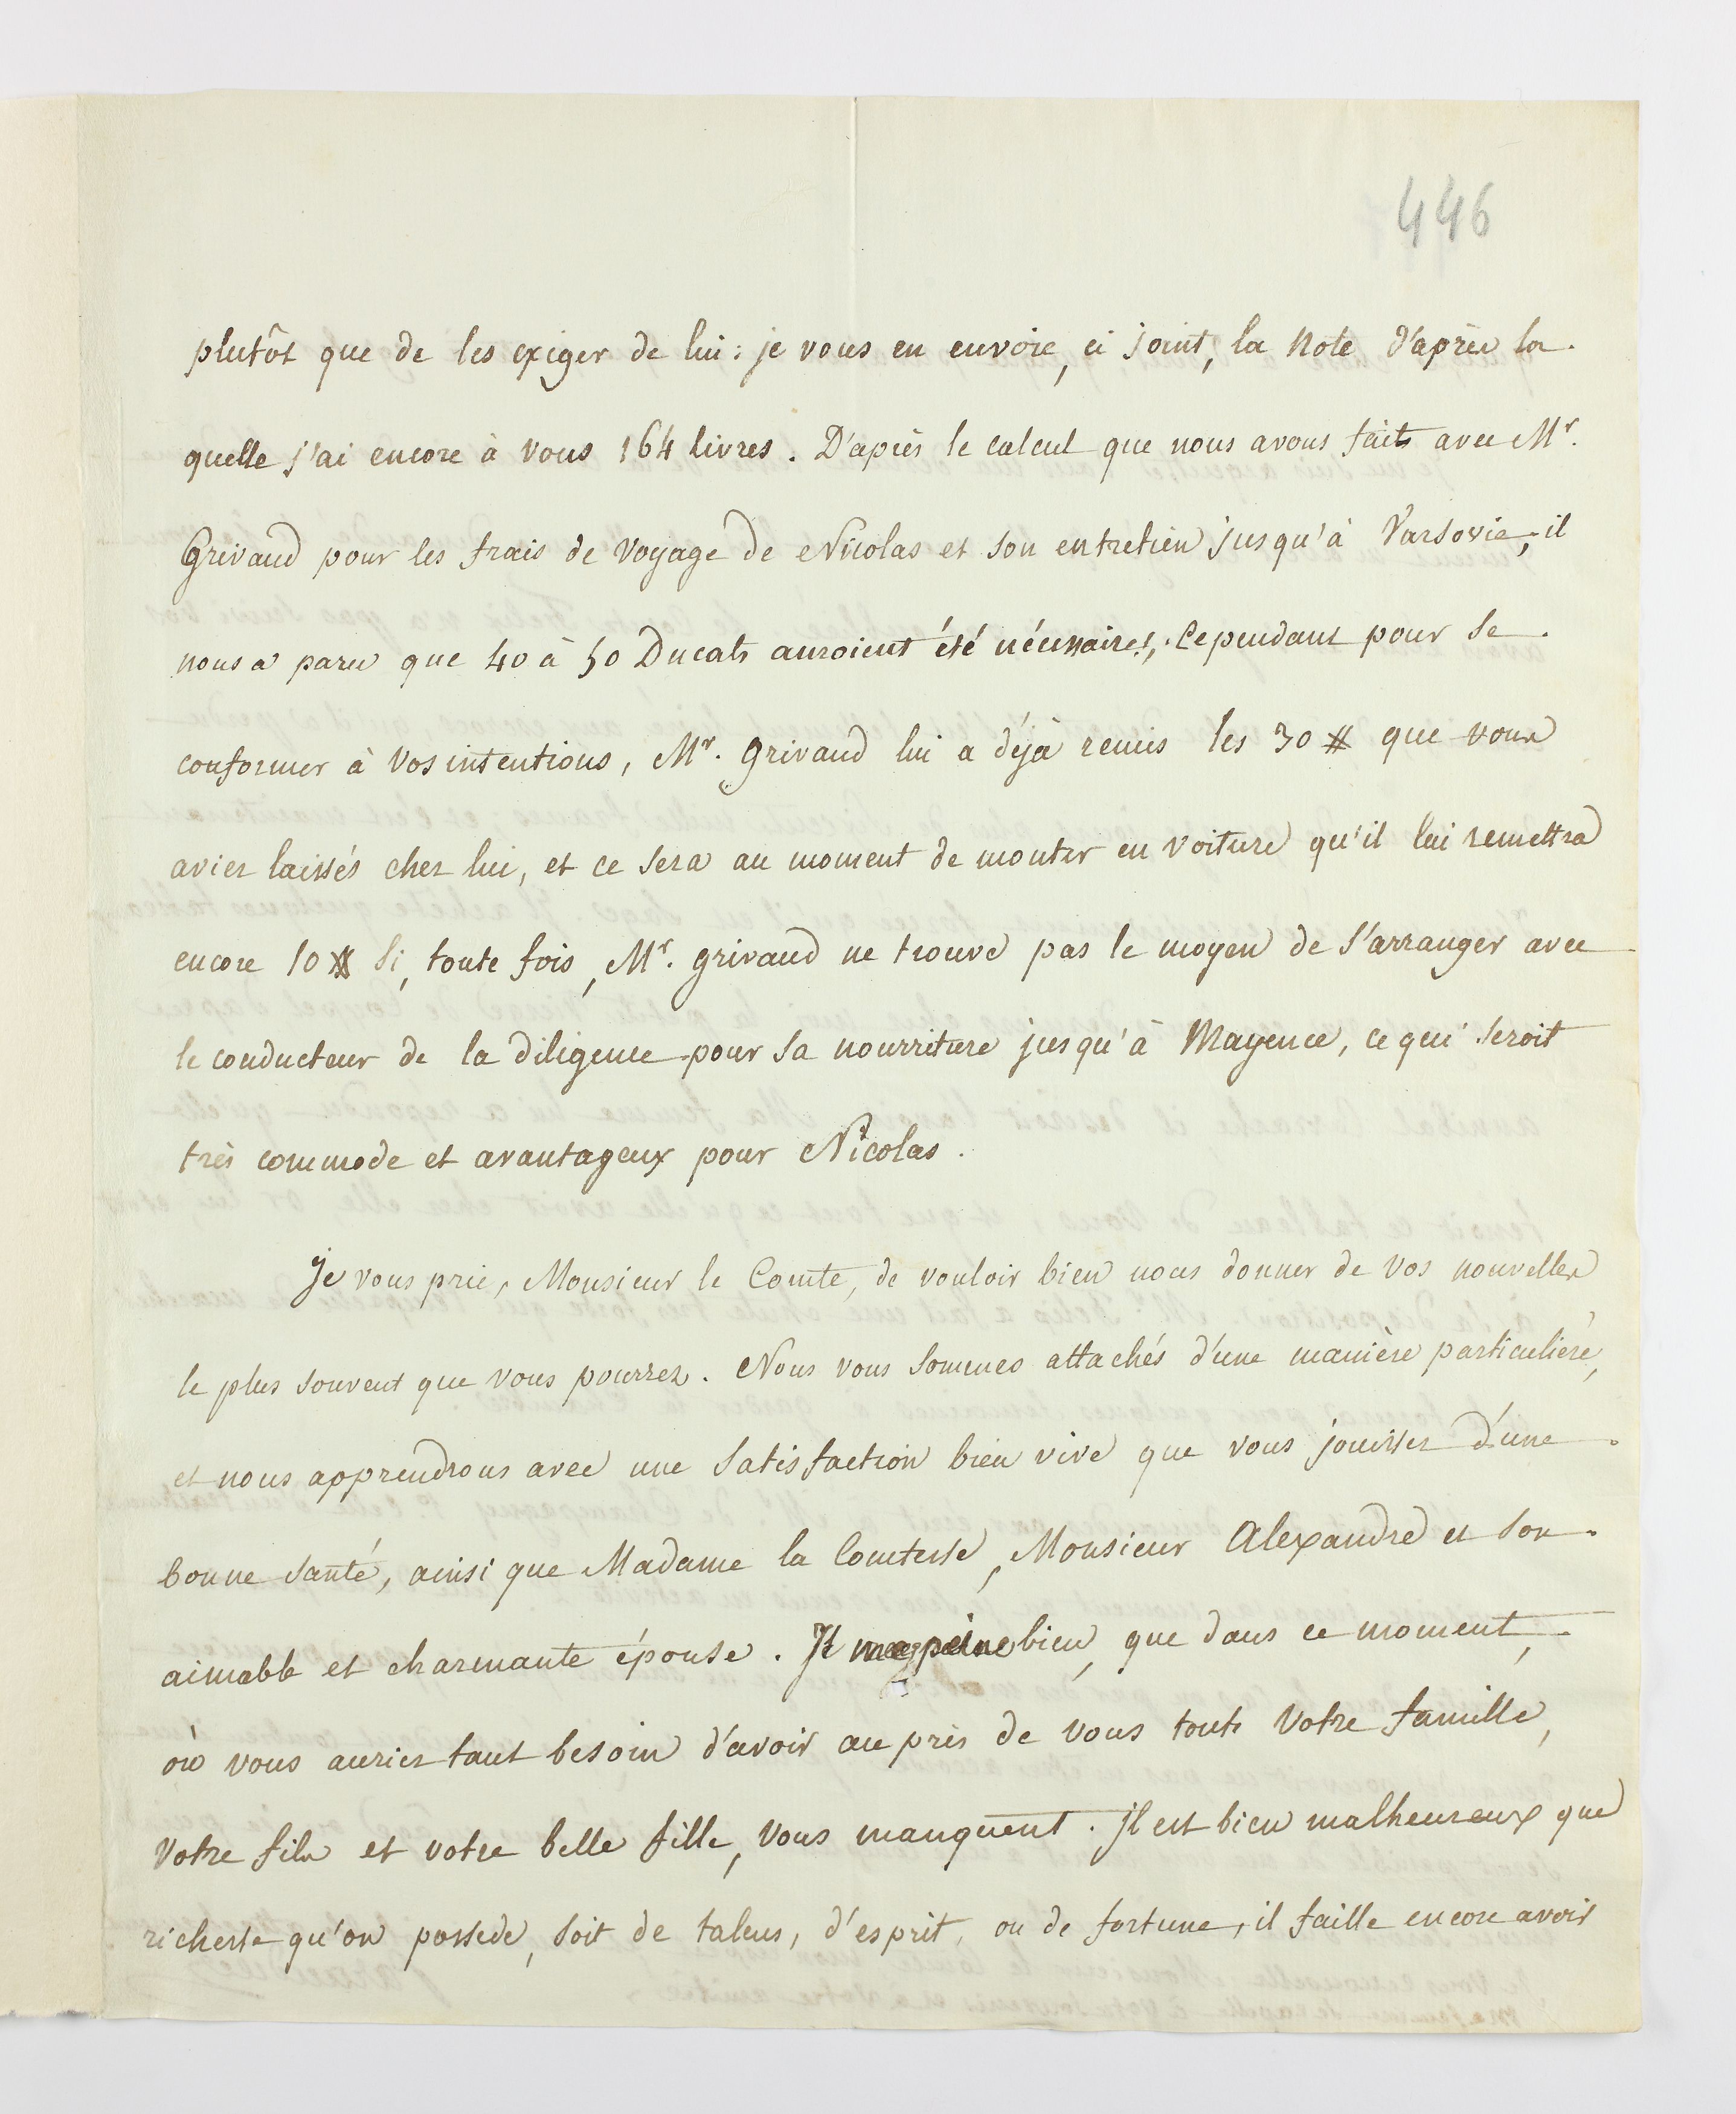 446
plutôt que de les exiger de lui : je vous en envoie, ci joint, la Note d'après la
quelle j'ai encore à vous 164 livres. D'après le calcul que nous avons faits avec Mr.
Grivaud pour les frais de voyage de Nicolas et son entretien jusqu'à Varsovie, il
nous a paru que 40 à 50 Ducats auroient été nécessaires, cependant pour se
conformer à vos intentions, Mr. Grivaud lui a déjà remis les 30 # que vous
aviez laissés chez lui, et ce sera au moment de monter en voiture qu'il lui remettra
encore 10 # si, toute fois, Mr. Grivaud ne trouve pas le moyen de s'arranger avec
le conducteur de la diligence pour sa nourriture jusqu'à Mayence, ce qui seroit
très commode et avantageux pour Nicolas.
Je vous prie, Monsieur le Comte, de vouloir bien nous donner de vos nouvelles
le plus souvent que vous pourrez. Nous vous sommes attachés d'une manière particulière,
et nous apprendrons avec une satisfaction bien vive que vous jouissez d'une
bonne santé, ainsi que Madame la Comtesse, Monsieur Alexandre et son
aimable et charmante épouse. Il me peine bien, que dans ce moment,
où vous auriez tant besoin d'avoir au près de vous toute votre famille,
votre fils et votre belle fille, vous manquent. Il est bien malheureux que
richesse qu'on possede, soit de talens, d'esprit, ou de fortune, il faille encore avoir